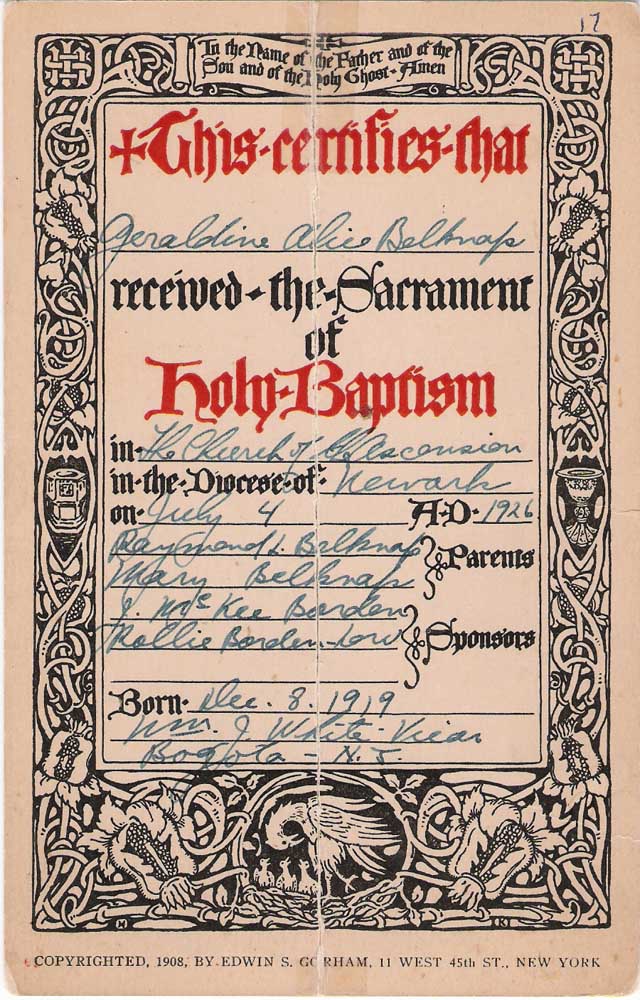 17
In the Name of the Father and of the
Son and of the Holy Ghost - Amen
This - certifies - that
Geraldine Alice Belknap
received - the - Sacrament
of
Holy - Baptism
in - The Church of Ascension
in - the - Diocese - of - Newark
on - July 4 A - D - 1926
Raymond L. Belknap
Mary Belknap
Parents
J. McKee Borden
Mollie Borden - Low
Sponsors
Born - Dec. 8. 1919
Wm. J White - Vicar
Bogota - N. J.
COPYRIGHTED, 1908, BY EDWIN S. GORHAM, 11 WEST 45th ST., NEW YORK